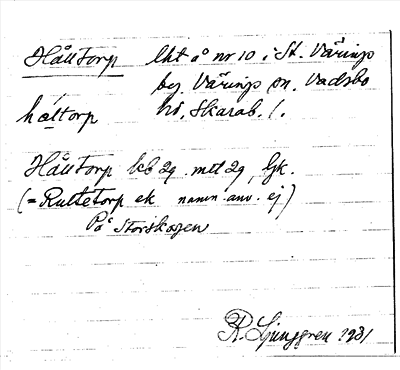 Hålltorp lht å nr 10 i St. Väring
by, Väring sn. Vadsbo
håltorp hd, Skarab. l.
Hålltorp kb 29 mtl 29, Gk.
(= Rulletorp ek namn anv. ej)
På Storskogen
R. Ljunggren 1931